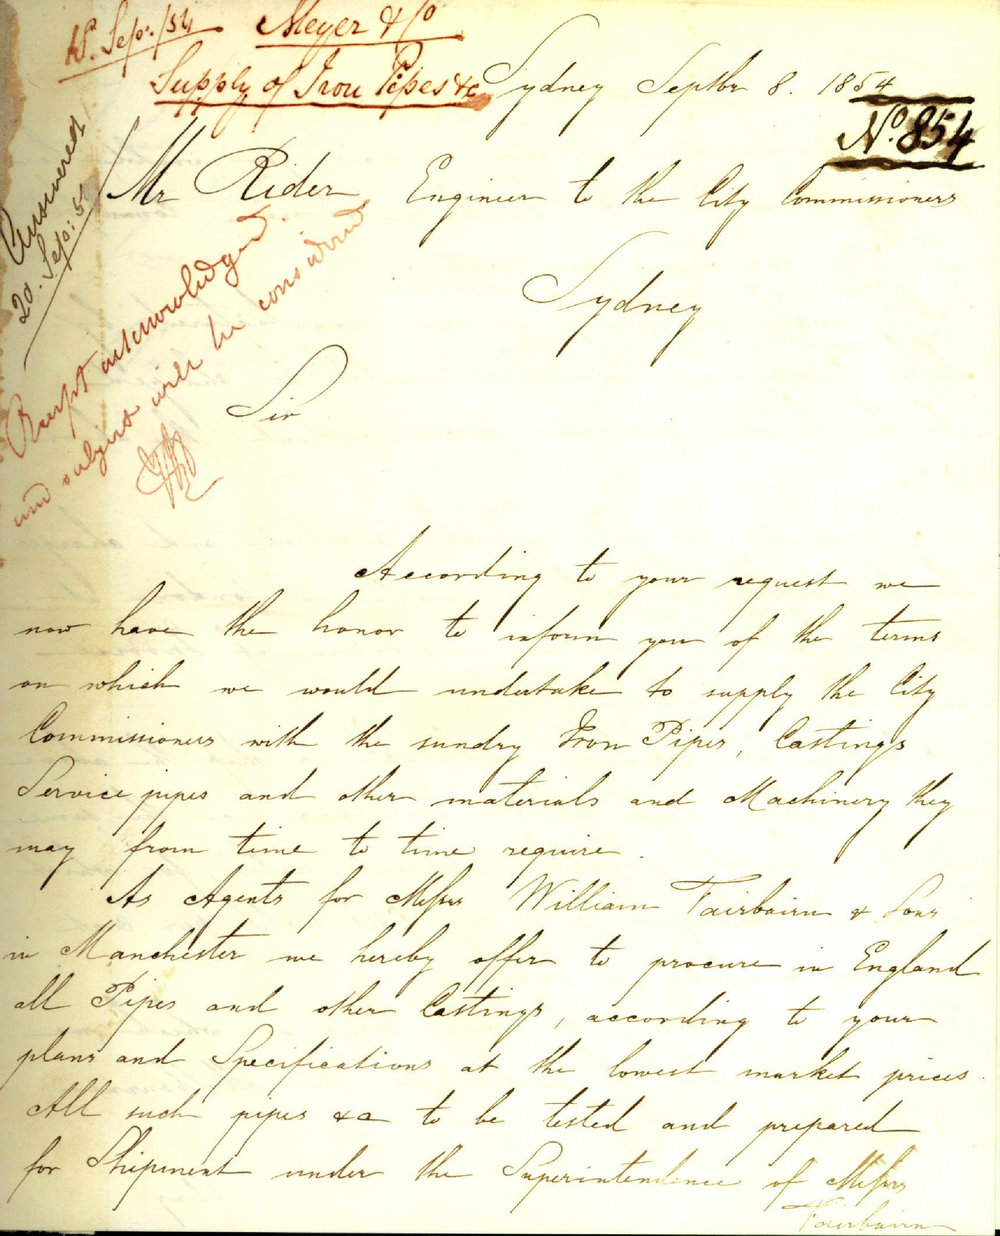 Sepr./54
Meyer & Co
Supply of Iron Pipes &c
Sydney Septbr 8. 1854
No. 854
Answered
20. Sep: 54
Mr Rider Engineer to the City Commissioners
Sydney
Receipt acknowledged
and subject will be considered
Sir
According to your request we
now have the honor to inform you of the terms
on which we would undertake to supply the City
Commissioners with the sundry Iron Pipes, Castings
Service pipes and other materials and Machinery they
may from time to time require.
As Agents for Messrs William Fairbairn & Sons
in Manchester we hereby offer to procure in England
all Pipes and other Castings, according to your
plans and Specifications at the lowest market prices.
All such pipes &c to be tested and prepared
for Shipment under the Superintendence of Messrs
Fairbairn